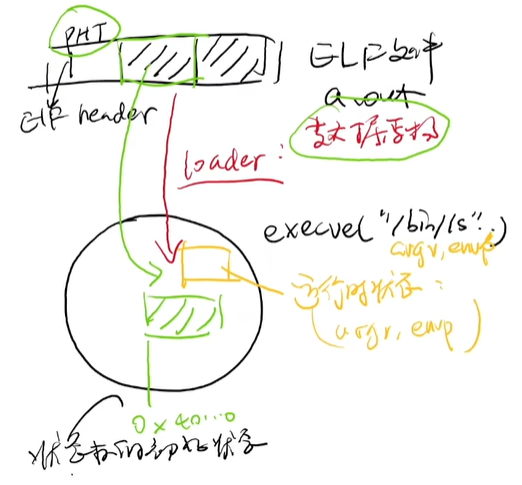 PHT
ELF header
ELF文件
a.out
数据结构
loader:
execve("/bin/ls"..)
argv, envp
运行时状态:
(argv, envp)
0x40...0
状态机的初始状态